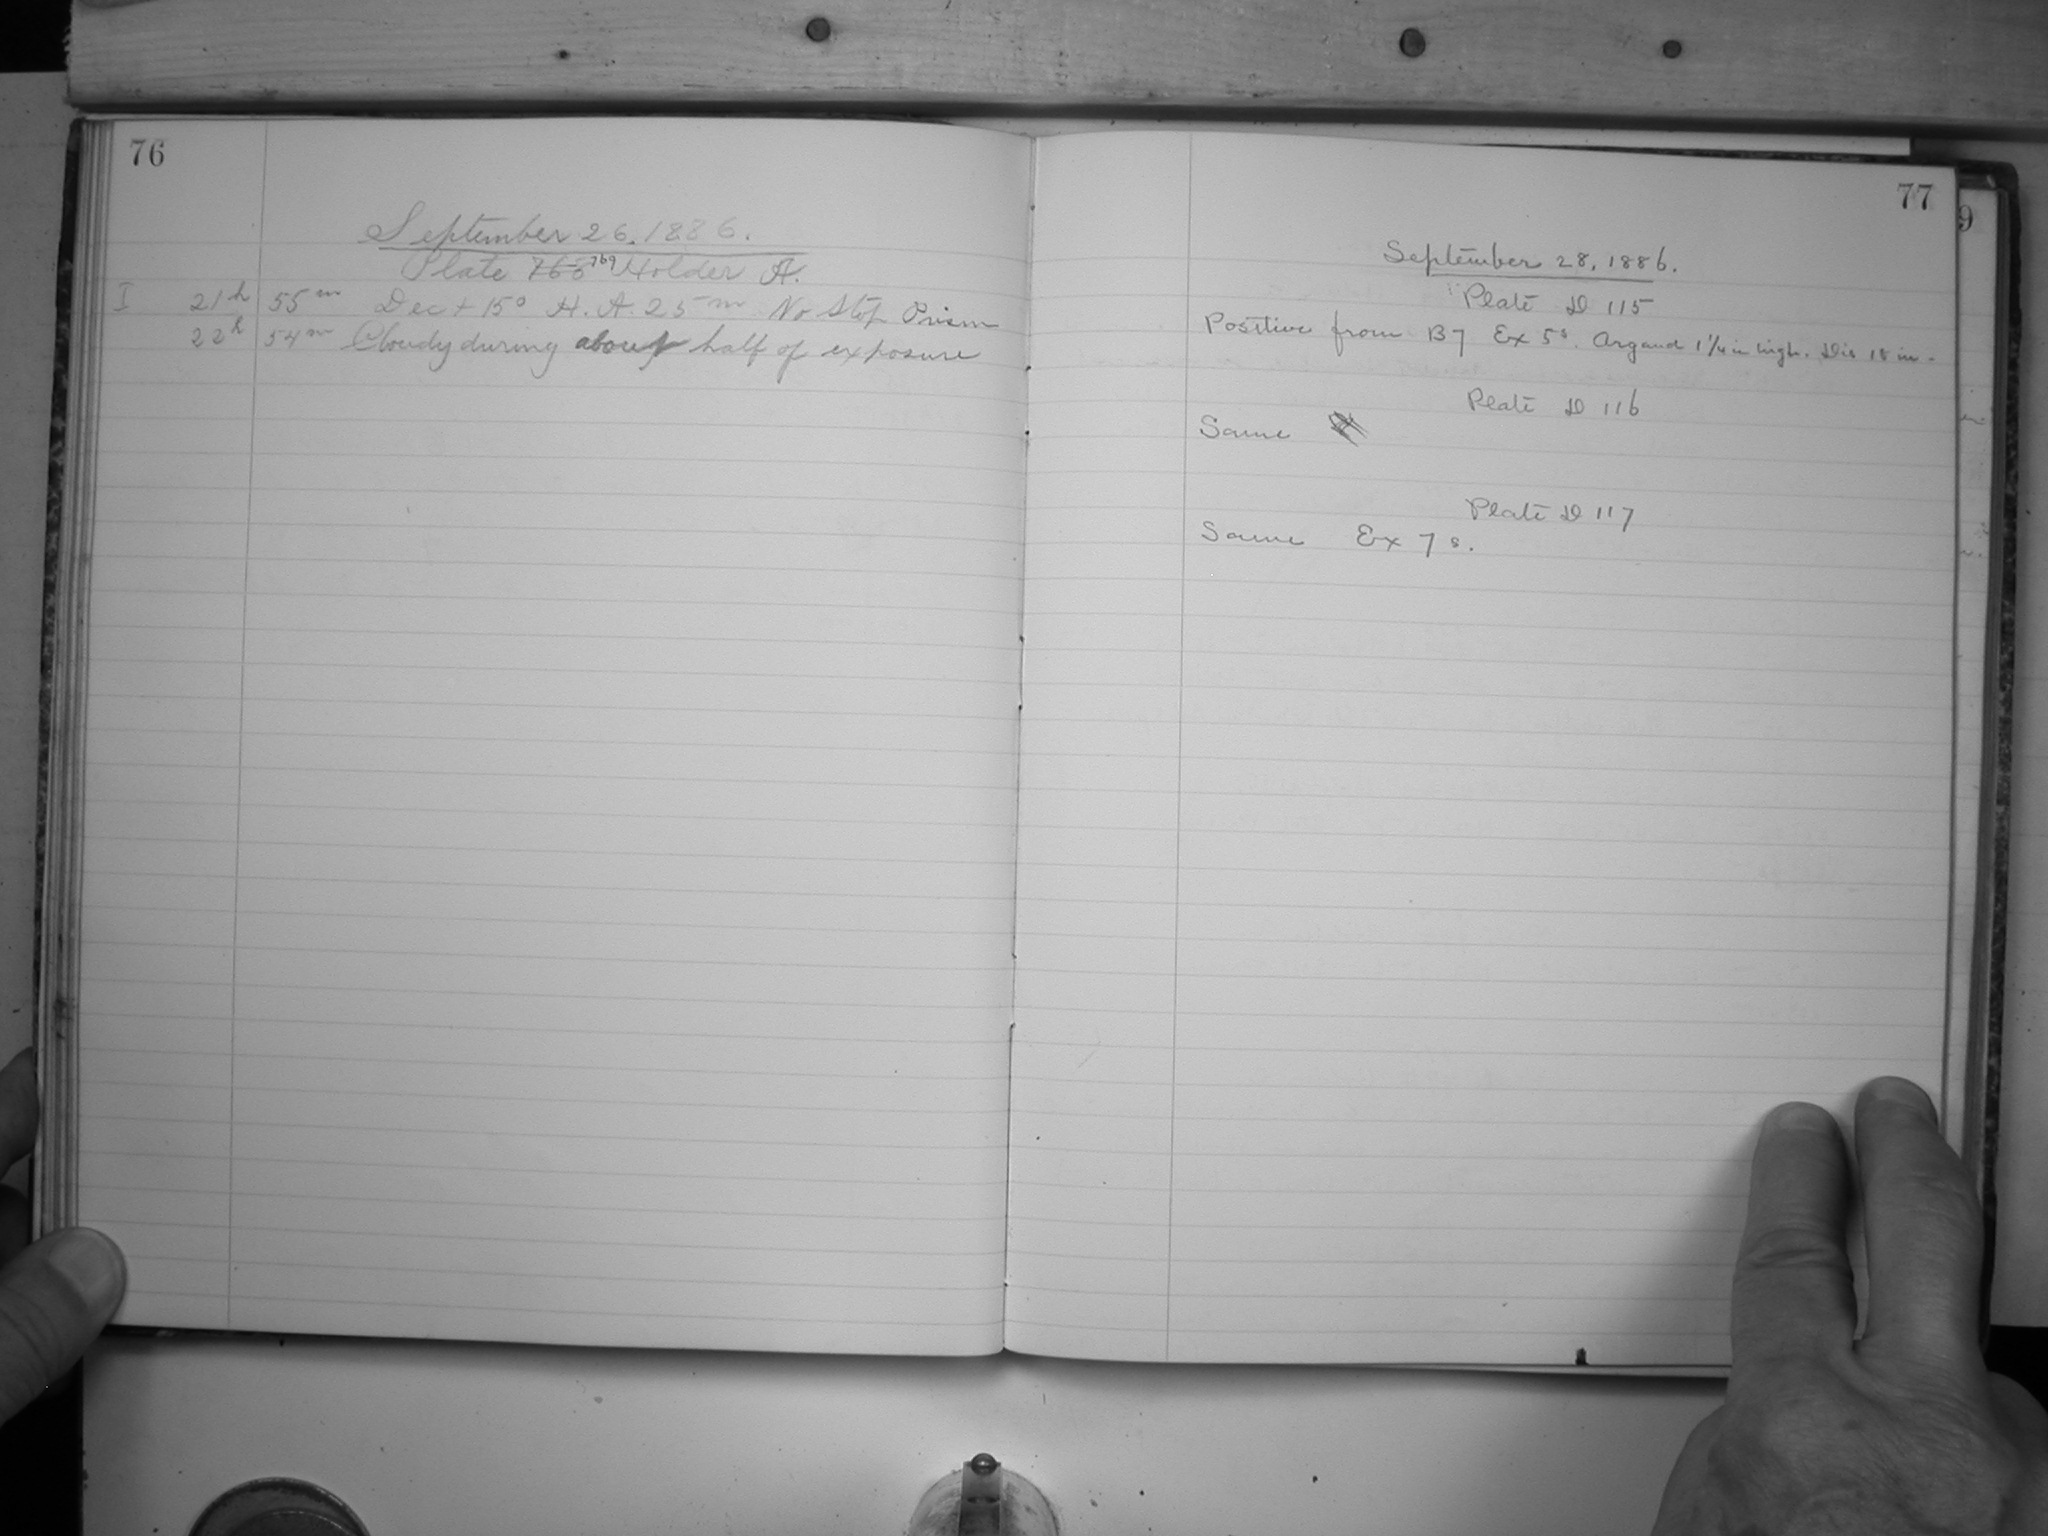 76
September 26, 1886.
Plate 768 769 Holder A.
I 21h 55m Dec + 15° H. A. 25m No Stop Prism
22h 54m Cloudy during about half of exposure
77
9
September 28, 1886.
Plate D 115
Positive from B7 Ex 5s. Argand 1 1/4 in high. Dis 18 in.
Plate D 116
Same
Plate D 117
Same Ex 7 s.